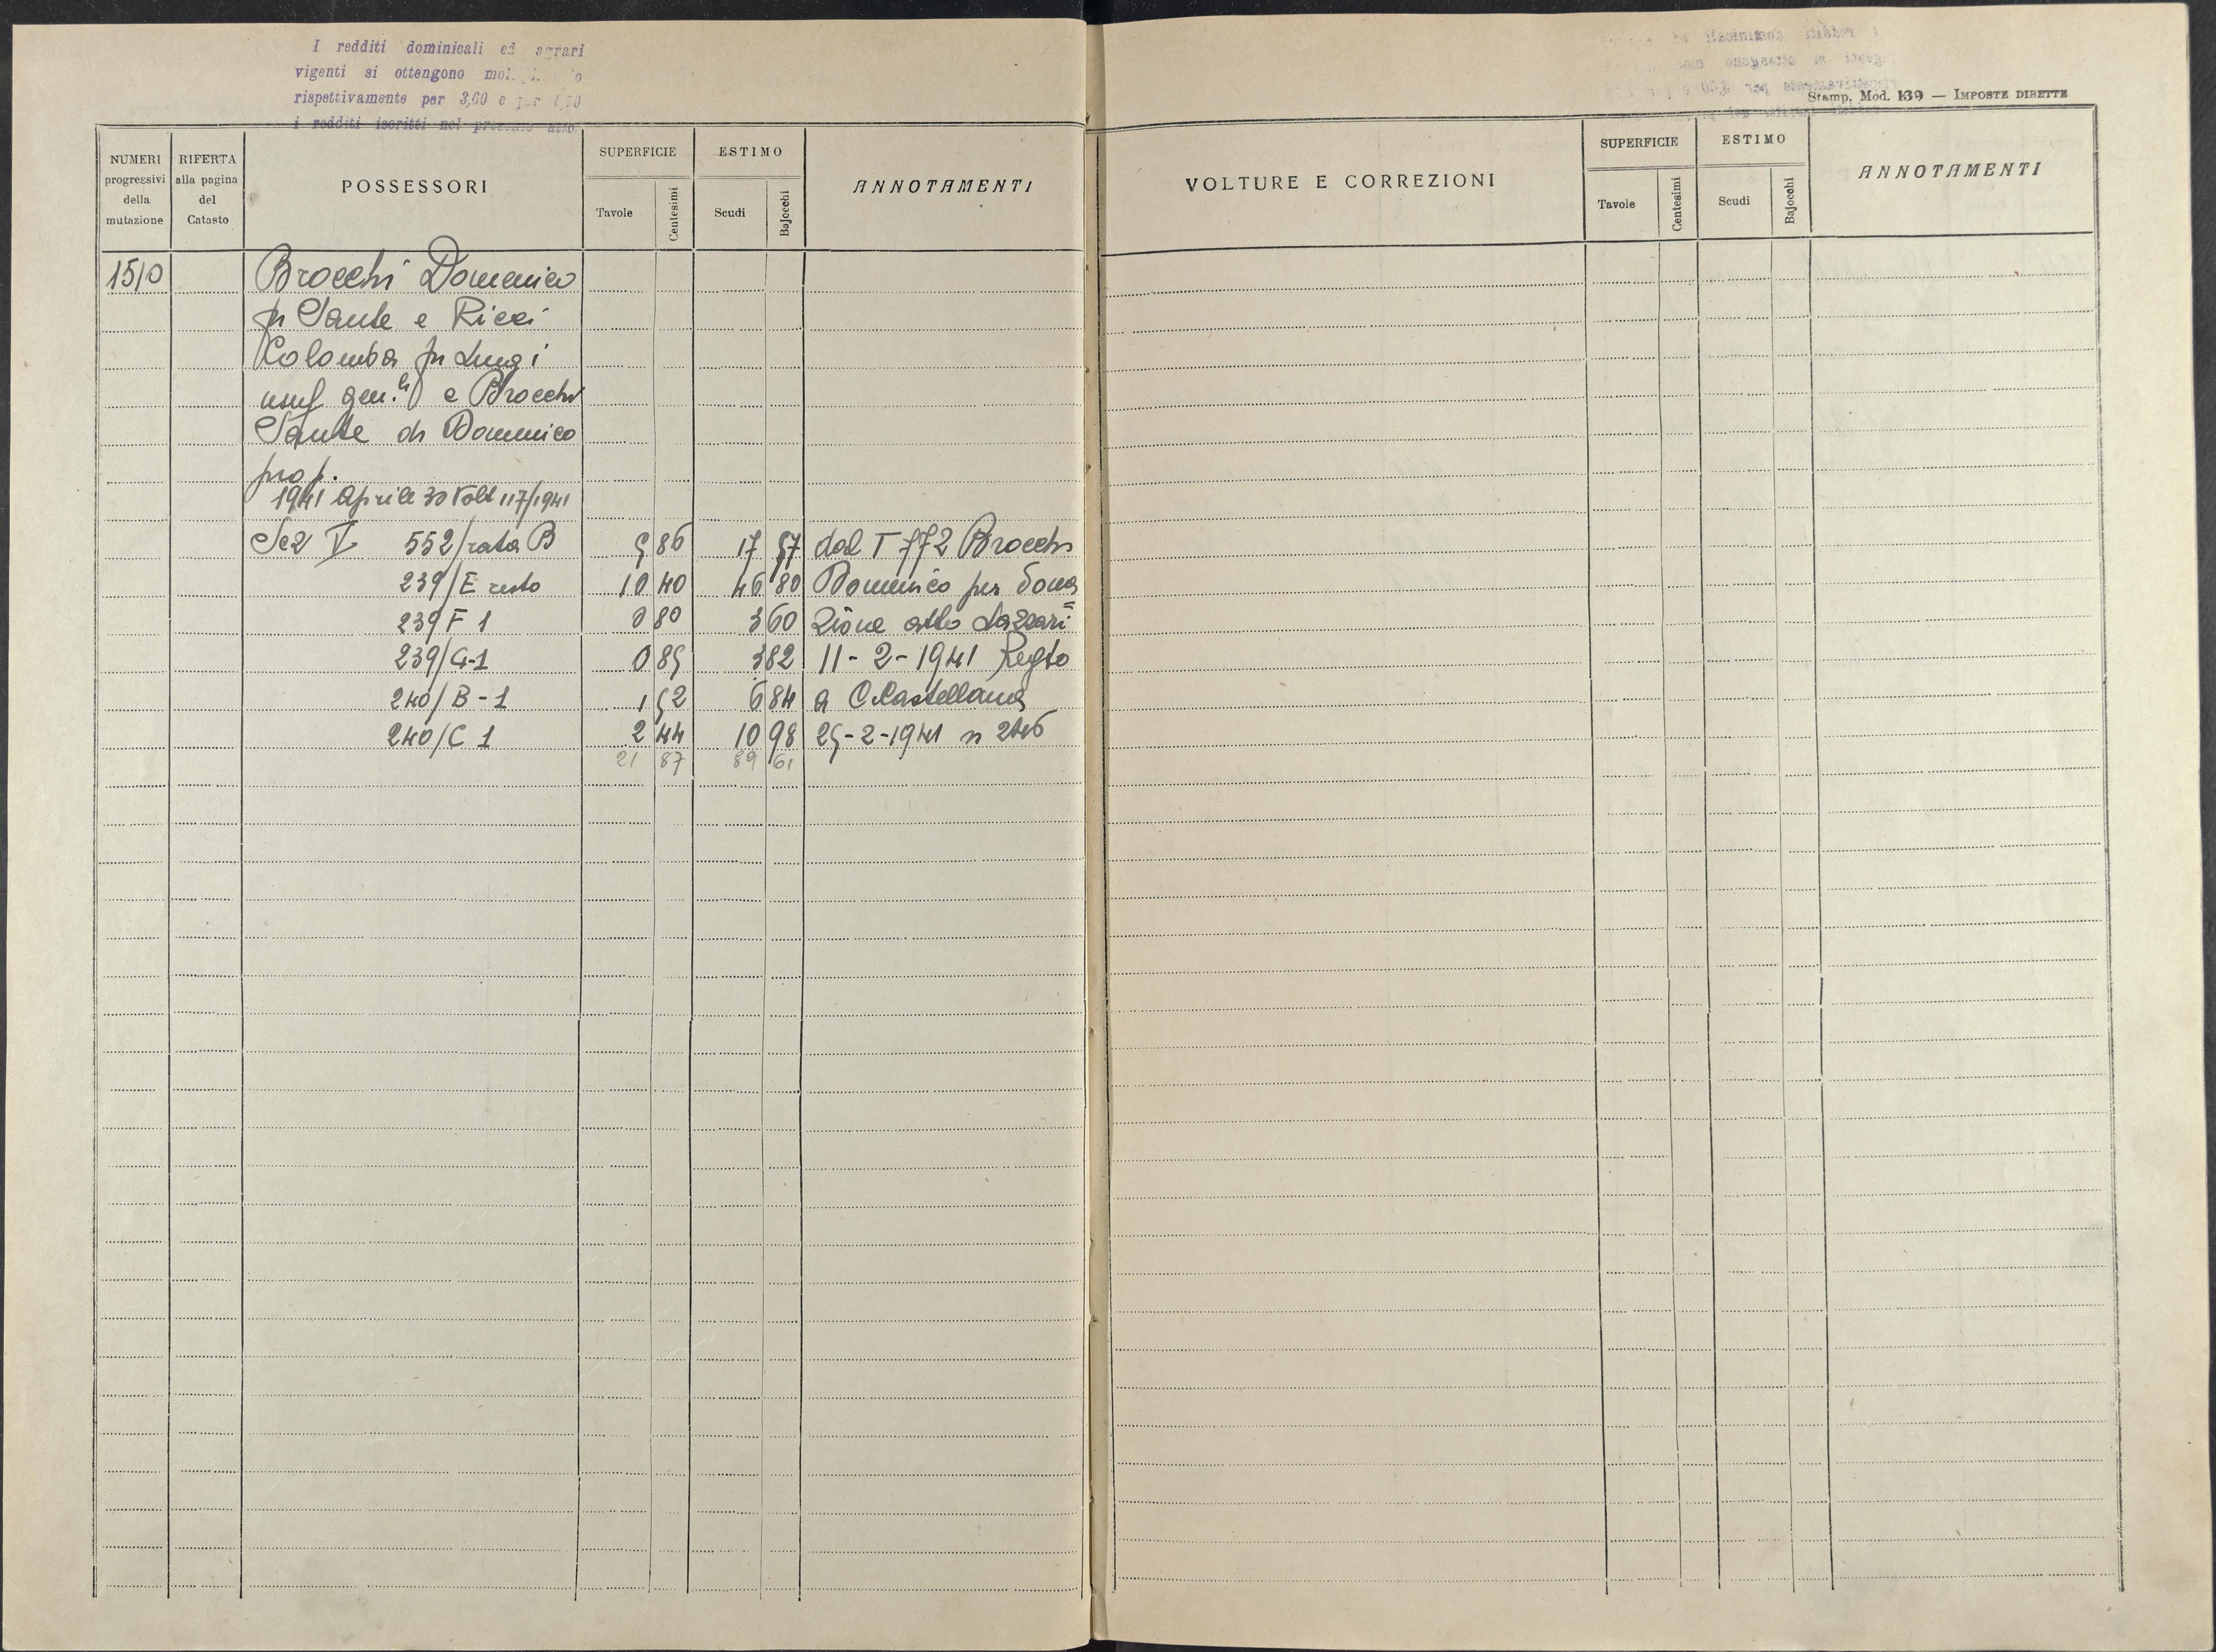 I redditi dominicali ed agrari
vigenti si ottengono
rispettivamente per 3,60 e per
i redditi iscritti nel presente atto
Stamp. Mod. 139 — IMPOSTE DIRETTE
NUMERI progressivi della mutazione
RIFERTA alla pagina del Catasto
POSSESSORI
SUPERFICIE
Tavole
Centesimi
ESTIMO
Scudi
Bajocchi
ANNOTAMENTI
VOLTURE E CORREZIONI
SUPERFICIE
Tavole
Centesimi
ESTIMO
Scudi
Bajocchi
ANNOTAMENTI
1510 Brocchi Domenico
fu Sante e Ricci
Colomba fu Luigi
usuf gen.li e Brocchi
Sante di Domenico
prop.
1941 Aprile 30 Volt 117/1941
Sez V 552/rata B 5 86 17 57 dal T 772 Brocchi
239/E resto 10 40 46 80 Domenico per dona
239 F 1 0 80 3 60 zione atto Lazzari
239/G-1 0 85 3 82 11-2-1941 Regto
240/B-1 1 52 6 84 a C Castellana
240/C 1 2 44 10 98 25-2-1941 n
21 87 89 61